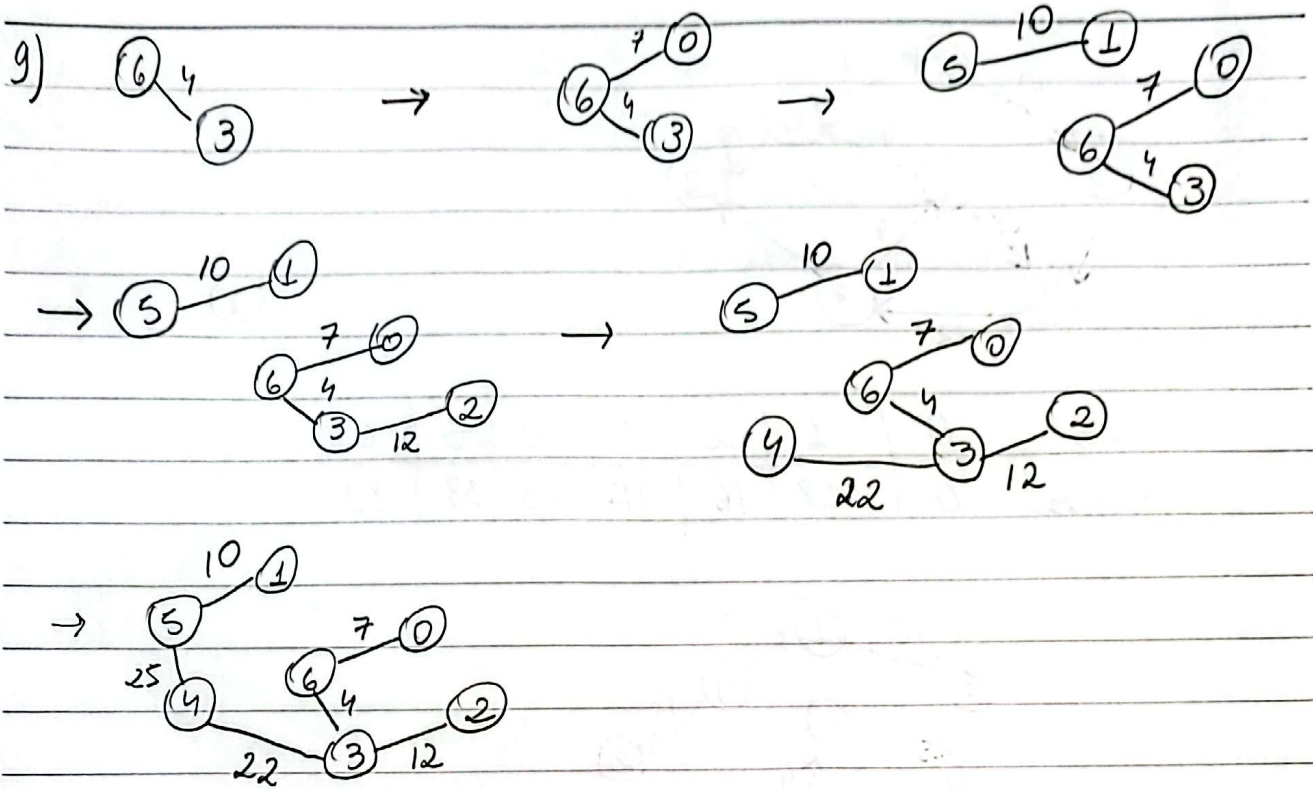 9) 6 4 3 → 7 0 6 4 3 → 5 10 1 7 0 6 4 3
→ 5 10 1 7 0 6 4 3 12 2 → 5 10 1 7 0 6 4 4 22 3 12 2
→ 10 1 5 25 4 7 0 6 4 22 3 12 2